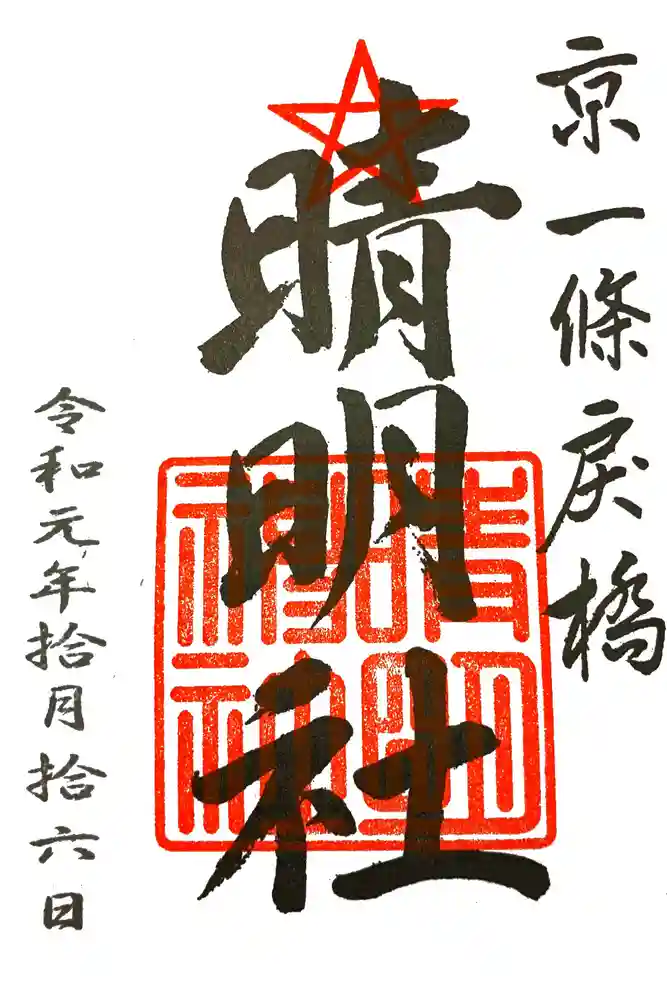 京一條戻橋
晴明社
晴明神社
令和元年拾月拾六日